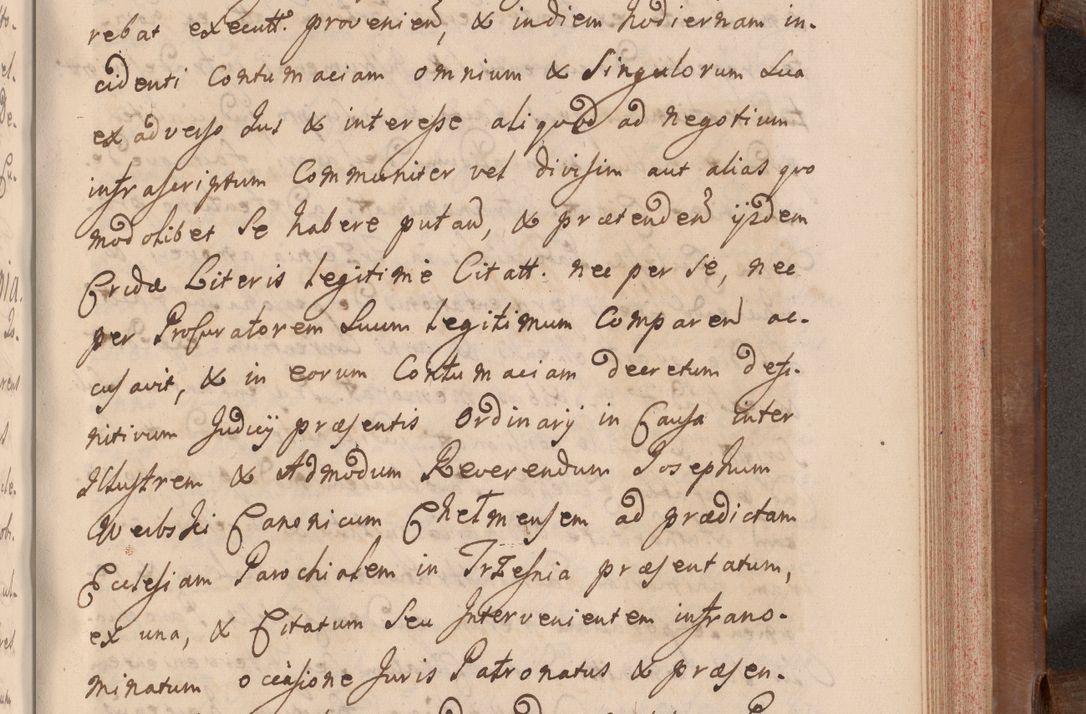 rebat executt. provenien, & in diem hodiernam in-
cidenti Contumaciam omnium & Singulorum Sua
ex adverso Jus & interesse aliquod ad negotium
infrascriptum Communiter vel divisim aut alias quo
modolibet Se habere putan, & prætenden ijsdem
Cridæ Literis Legitimè Citatt. nec per Se, nec
per Procuratorem Suum Legitimum Comparen ac-
cusavit, & in eorum Contumaciam decretum defi-
nitivum Judicij præsentis Ordinarij in Causa inter
Illustrem & Admodum Reverendum Josephum
Canonicum Chelmensem ad prædictam
Ecclesiam Parochialem in Trzesnia præsentatum,
ex una, & Citatum Seu Intervenientem infrano-
minatum occasione Juris Patronatus & præsen-